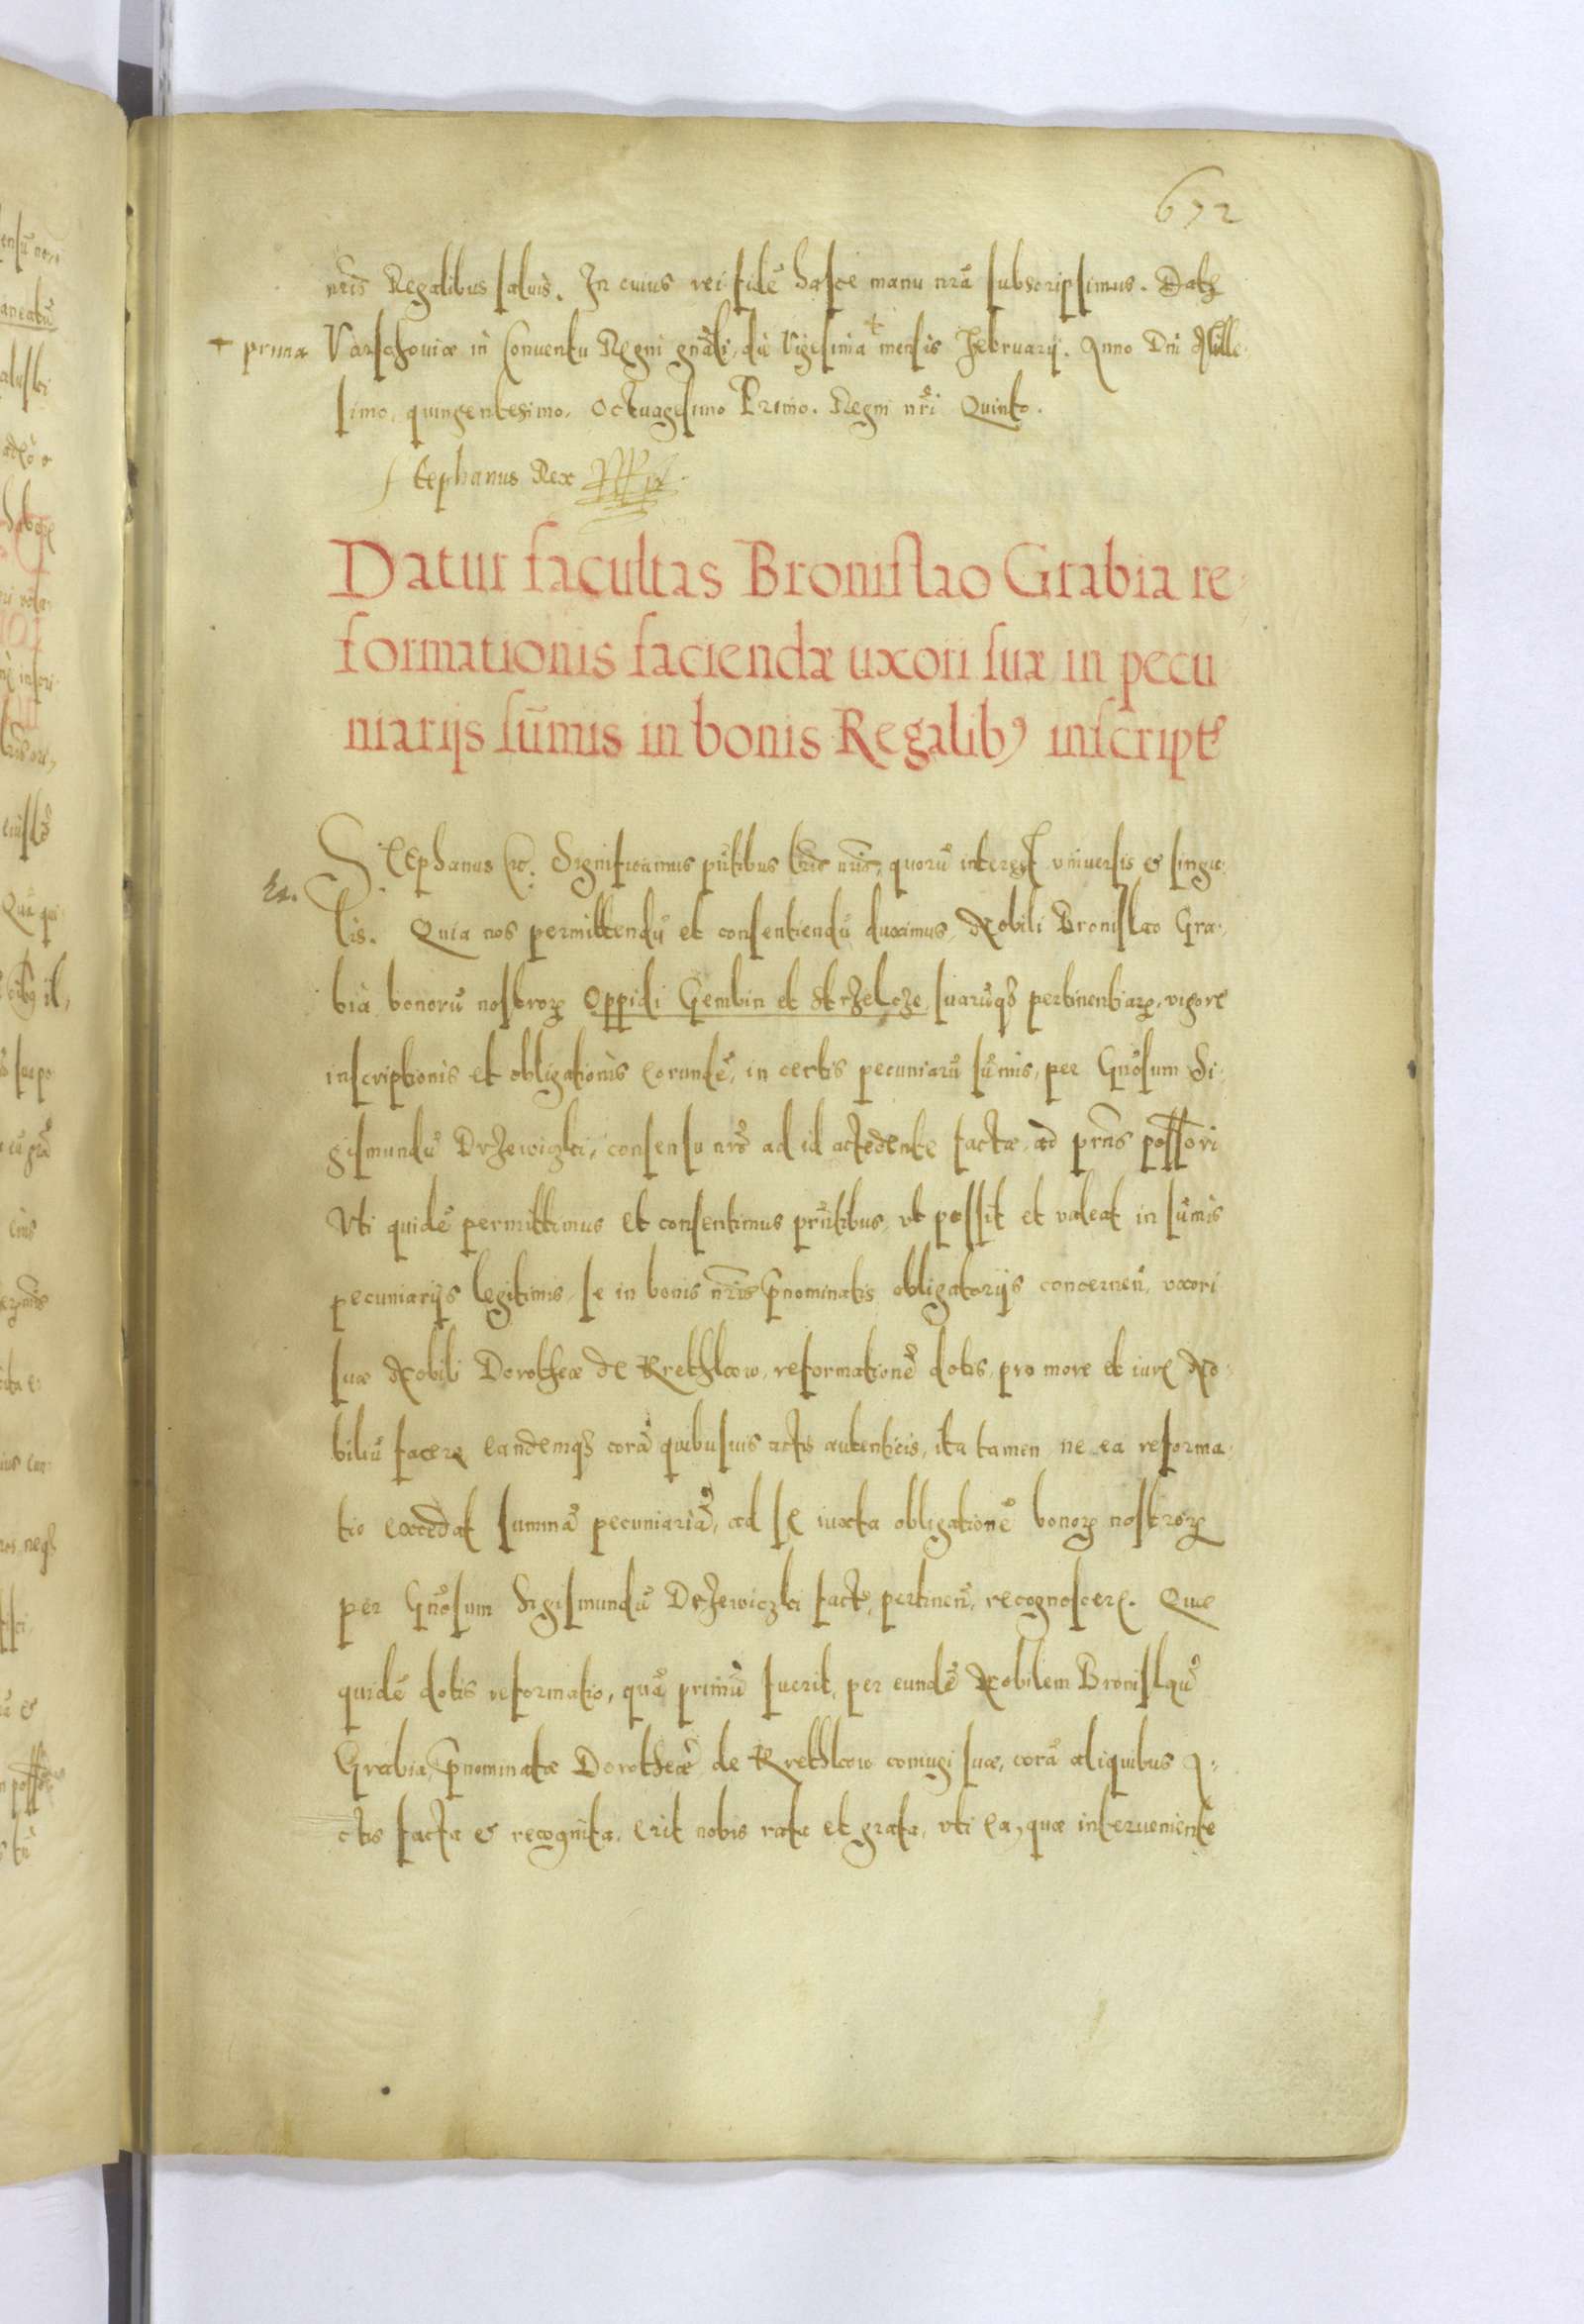 672
nr̃is Regalibus saluis. In cuius rei fidẽ hasce manu nr̃a subscripsimus. Datꝫ
+ prima Varschouiæ in Conuentu Regni gnãli, diẽ Vigesima + mensis Februarij. Anno Dñi Mille-
simo, quingentesimo, Octuagesimo Primo. Regni nr̃i Quinto.
Stephanus Rex
Datur facultas Bronislao Grabia re-
formationis faciendæ uxori suæ in pecu
niarijs sum̃is in bonis Regalibꝰ inscript̃
Stephanus &c. Significamus pñtibus lr̃is nr̃is, quorũ interest vniuersis & singu-
lis. Quia nos permittendũ et consentiendũ duximus, Nobili Bronislao Gra-
bia bonorũ nostroꝝ Oppidi Gembin et Strzelcze, suarũqꝫ pertinentiaꝝ, vigore
inscriptionis et obligationis eorundẽ, in certis pecuniarũ sum̃is, per Gñosum Si-
gismundũ Drzewiczki, consensu nr̃o ad id accedente factæ, ad prñs possõri
Vti quidẽ permittimus et consentimus prñtibus, vt possit et valeat in sum̃is
pecuniarijs legitimis, se in bonis nr̃is p̃nominatis obligatorijs concerneñ, vxori
suæ Nobili Dorotheæ de Krethkow, reformationẽ dotis, pro more et iure No-
biliũ facere eandemqꝫ corã quibusuis actis autenticis, ita tamen ne ea reforma-
tio excedat summã pecuniariã, ad se iuxta obligationẽ bonoꝝ nostroꝝ
per Gñosum Sigismundũ Drzewiczki factã, pertineñ, recognoscere. Quæ
quidẽ dotis reformatio, quã primũ fuerit, per eundẽ Nobilem Bronislaũ
Grabia, p̃nominatæ Dorotheæ de Krethkow coniugi suæ, corã aliquibus A-
ctis facta & recognita, erit nobis rata et grata, vti ea, quæ interueniente